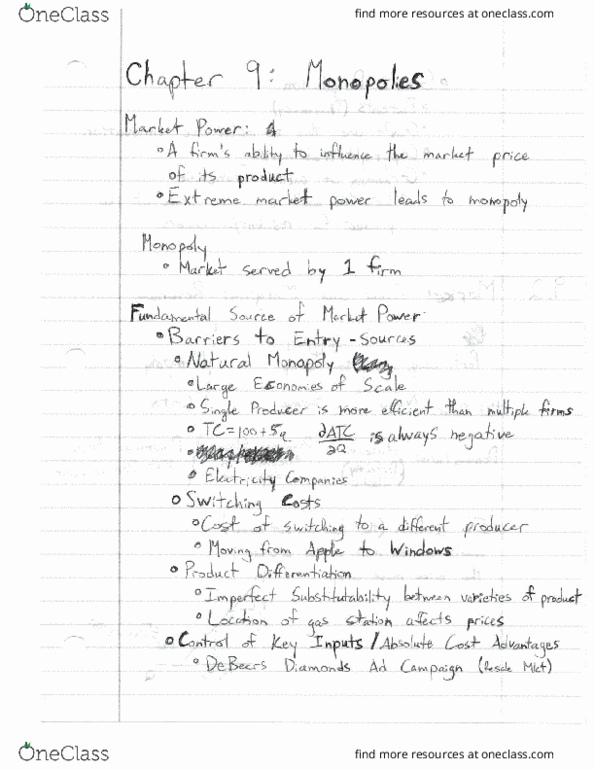 OneClass
find more resources at oneclass.com
Chapter 9: Monopolies
Market Power:
• A firm's ability to influence the market price
of its product
• Extreme market power leads to monopoly
Monopoly
• Market served by 1 firm
Fundamental Source of Market Power
• Barriers to Entry - Sources
• Natural Monopoly
• Large Economies of Scale
• Single Producer is more efficient than multiple firms
• TC=100+5q ∂ATC/∂Q is always negative
• Electricity Companies
• Switching Costs
• Cost of switching to a different producer
• Moving from Apple to Windows
• Product Differentiation
• Imperfect Substitutability between varieties of product
• Location of gas station affects prices
• Control of Key Inputs / Absolute Cost Advantages
• DeBeers Diamonds Ad Campaign (Resale Mkt)
OneClass
find more resources at oneclass.com